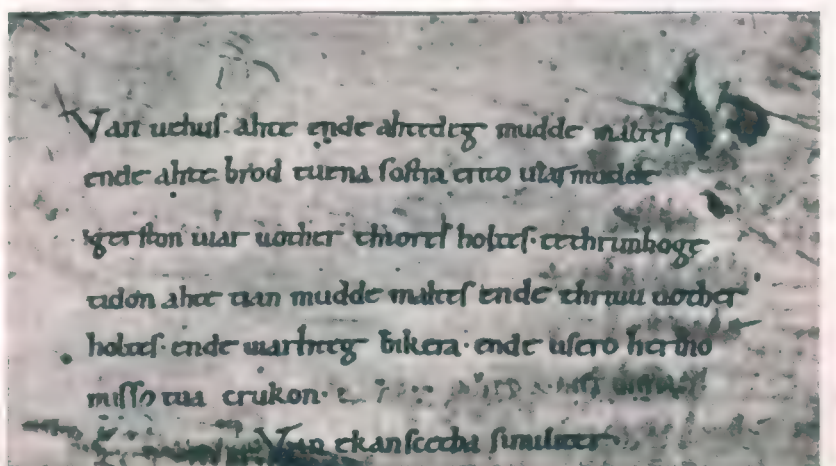 Van uehus ahte ende ahtedeg mudde maltes
ende ahte brod tuena sostra erito uiar mudde
gerston uiar uother thiores holtes. te thrim hoge
tidon ahte tian mudde maltes ende thriuu uother
holtes. ende uiarhteg bikera. ende usero herino
misso tua crukon.
Van ekanscetha similiter